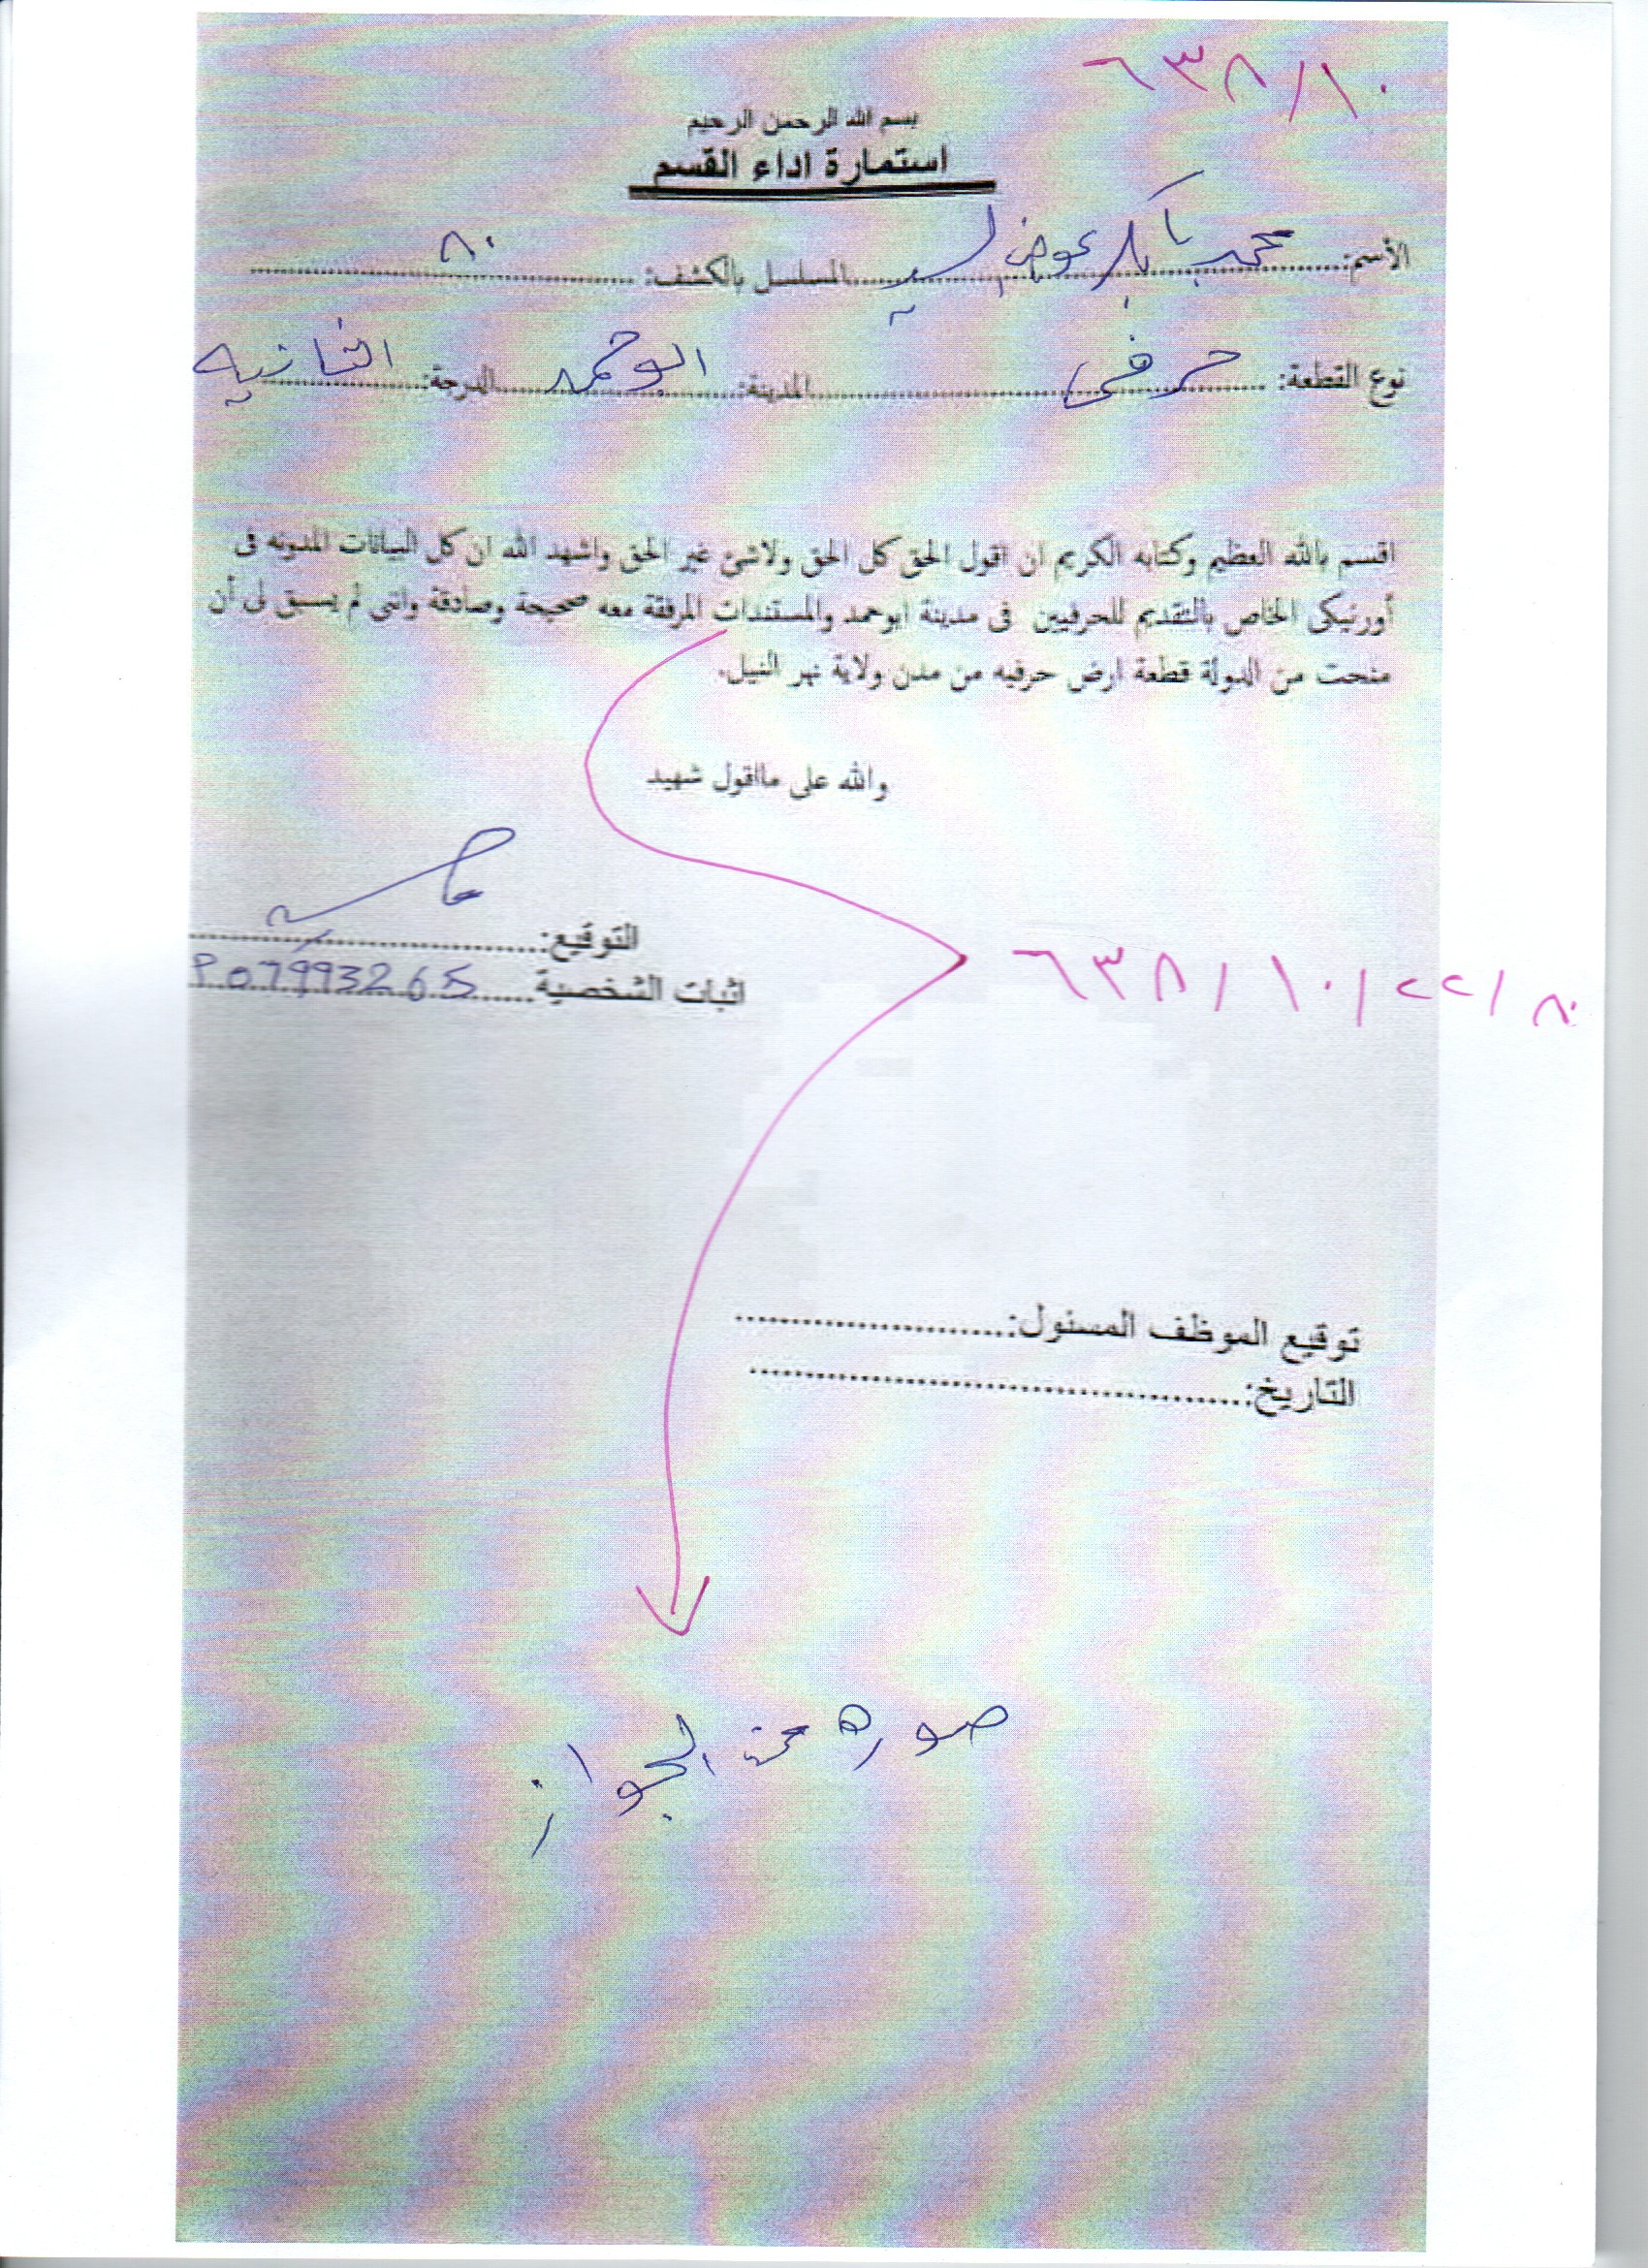 ٦٣٨/١٠
بسم الله الرحمن الرحيم
استمارة اداء القسم
الأسم: محمد بابكر عوض السيد المسلسل بالكشف: ٨٠
نوع القطعة: حرفى المدينة: ابوحمد الدرجة: الثانيه
اقسم بالله العظيم وكتابه الكريم ان اقول الحق كل الحق ولاشئ غير الحق واشهد الله ان كل البيانات المدونه فى
أورنيكى الخاص بالتقديم للحرفيين فى مدينة ابوحمد والمستندات المرفقة معه صحيحة وصادقة وانى لم يسبق لى أن
منحت من الدولة قطعة ارض حرفيه من مدن ولاية نهر النيل.
والله على مااقول شهيد
التوقيع:
اثبات الشخصية P07993265
٦٣٨/١٠/٢٢/٨٠
توقيع الموظف المسئول:
التاريخ:
صوره من الجواز